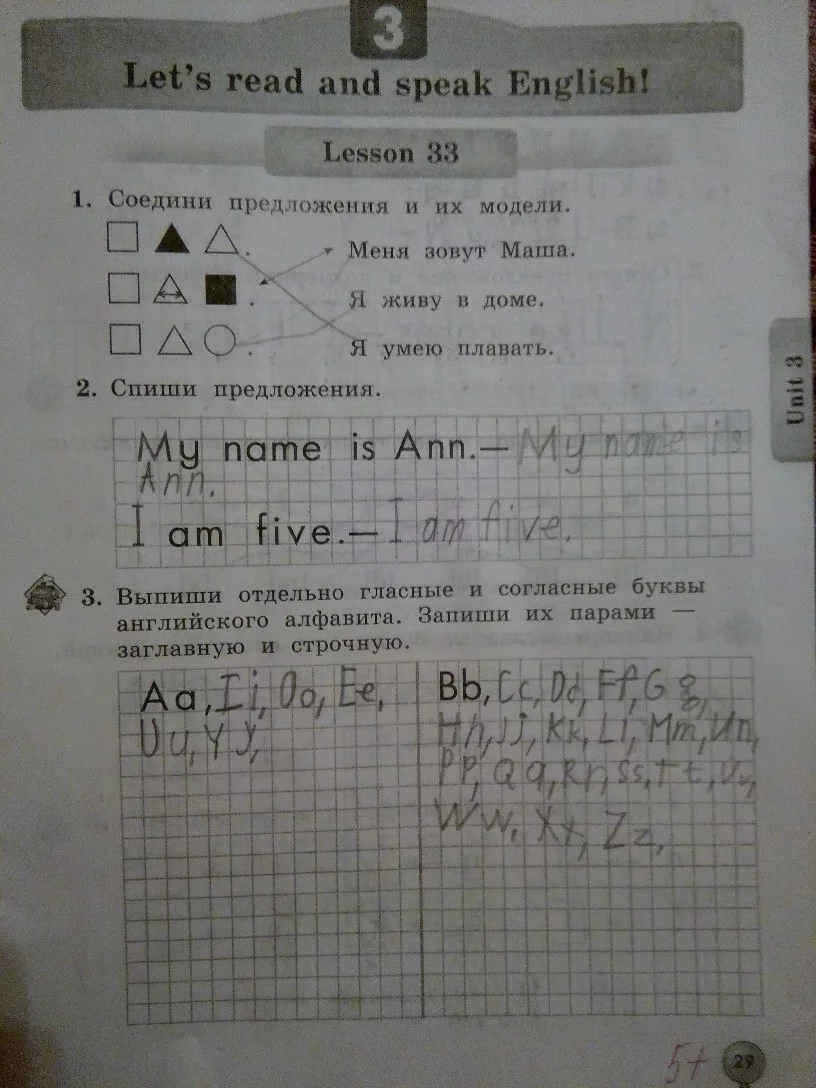 3
Let's read and speak English!
Lesson 33
1. Соедини предложения и их модели.
Меня зовут Маша.
Я живу в доме.
Я умею плавать.
Unit 3
2. Спиши предложения.
My name is Ann.— My name is
Ann.
I am five.— I am five.
3. Выпиши отдельно гласные и согласные буквы
английского алфавита. Запиши их парами —
заглавную и строчную.
Aa, Ii, Oo, Ee,
Uu, Yy,
Bb, Cc, Dd, Ff, Gg,
Hh, Jj, Kk, Ll, Mm, Nn,
Pp, Qq, Rr, Ss, Tt, Vv,
Ww, Xx, Zz,
5+ 29